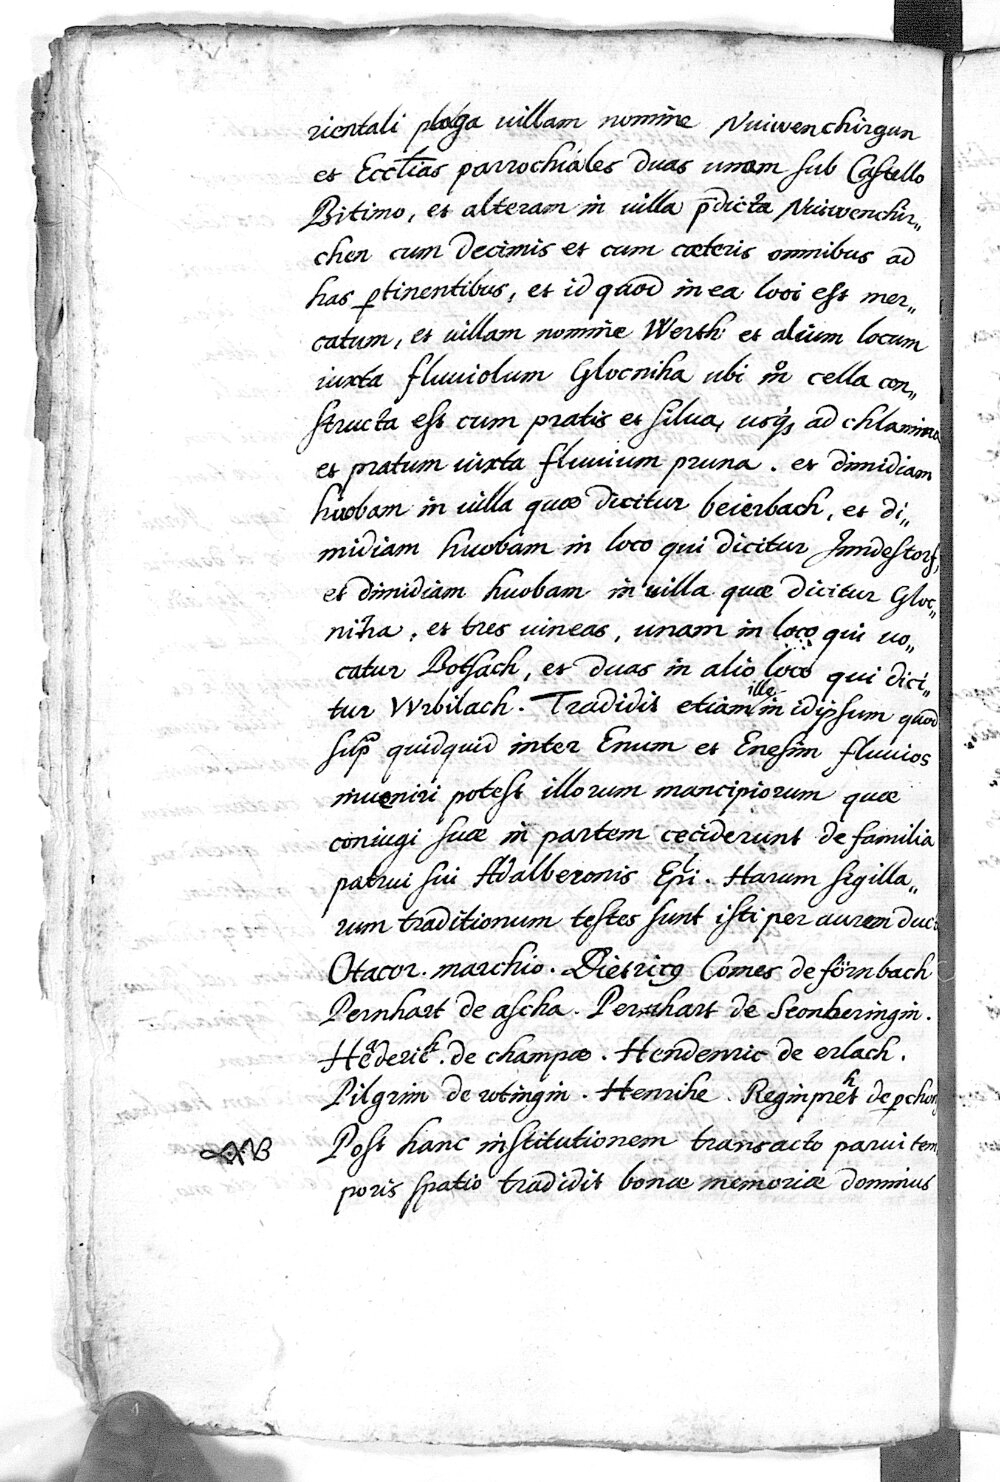 rientali plaga uillam nomine Nuiwenchirgun
et Eccl̃ias parrochiales duas unam sub Castello
Bitino, et alteram in uilla p̄dicta Nuiwenchir„
chen cum decimis et cum cæteris omnibus ad
has ptinentibus, et id quod in ea loci est mer„
catum, et uillam nomine Werth et alium locum
iuxta fluuiolum Glocniha ubi m̊ cella con„
structa est cum pratis et silua, usq; ad chlamina
et pratum iuxta fluuium pruna. et dimidiam
huobam in uilla quæ dicitur beierbach, et di„
midiam huobam in loco qui dicitur Jnndestorf,
et dimidiam huobam in uilla quæ dicitur Gloc„
niha, et tres uineas, unam in loco qui uo„
catur Potsach, et duas in alio loco qui dici„
tur Wrbilach. Tradidit etiam ille in idipsum quod
sup̄ quidquid inter Enum et Enesim fluuios
inueniri potest illorum mancipiorum quæ
coniugi suæ in partem ceciderunt de familia
patrui sui Adalberonis Epĩ. Harum sigilla„
rum traditionum testes sunt isti per aurem duc
Otacor. marchio. Dietricg Comes de förnbach
Pernhart de ascha. Pernhart de Stonheringin.
Haderich. de champæ. Hendenric de erlach.
Pilgrim de wtingin. Henrihe. Reginpreht de pchon
Post hanc institutionem transacto parui tem
poris spatio tradidit bonæ memoriæ dominus